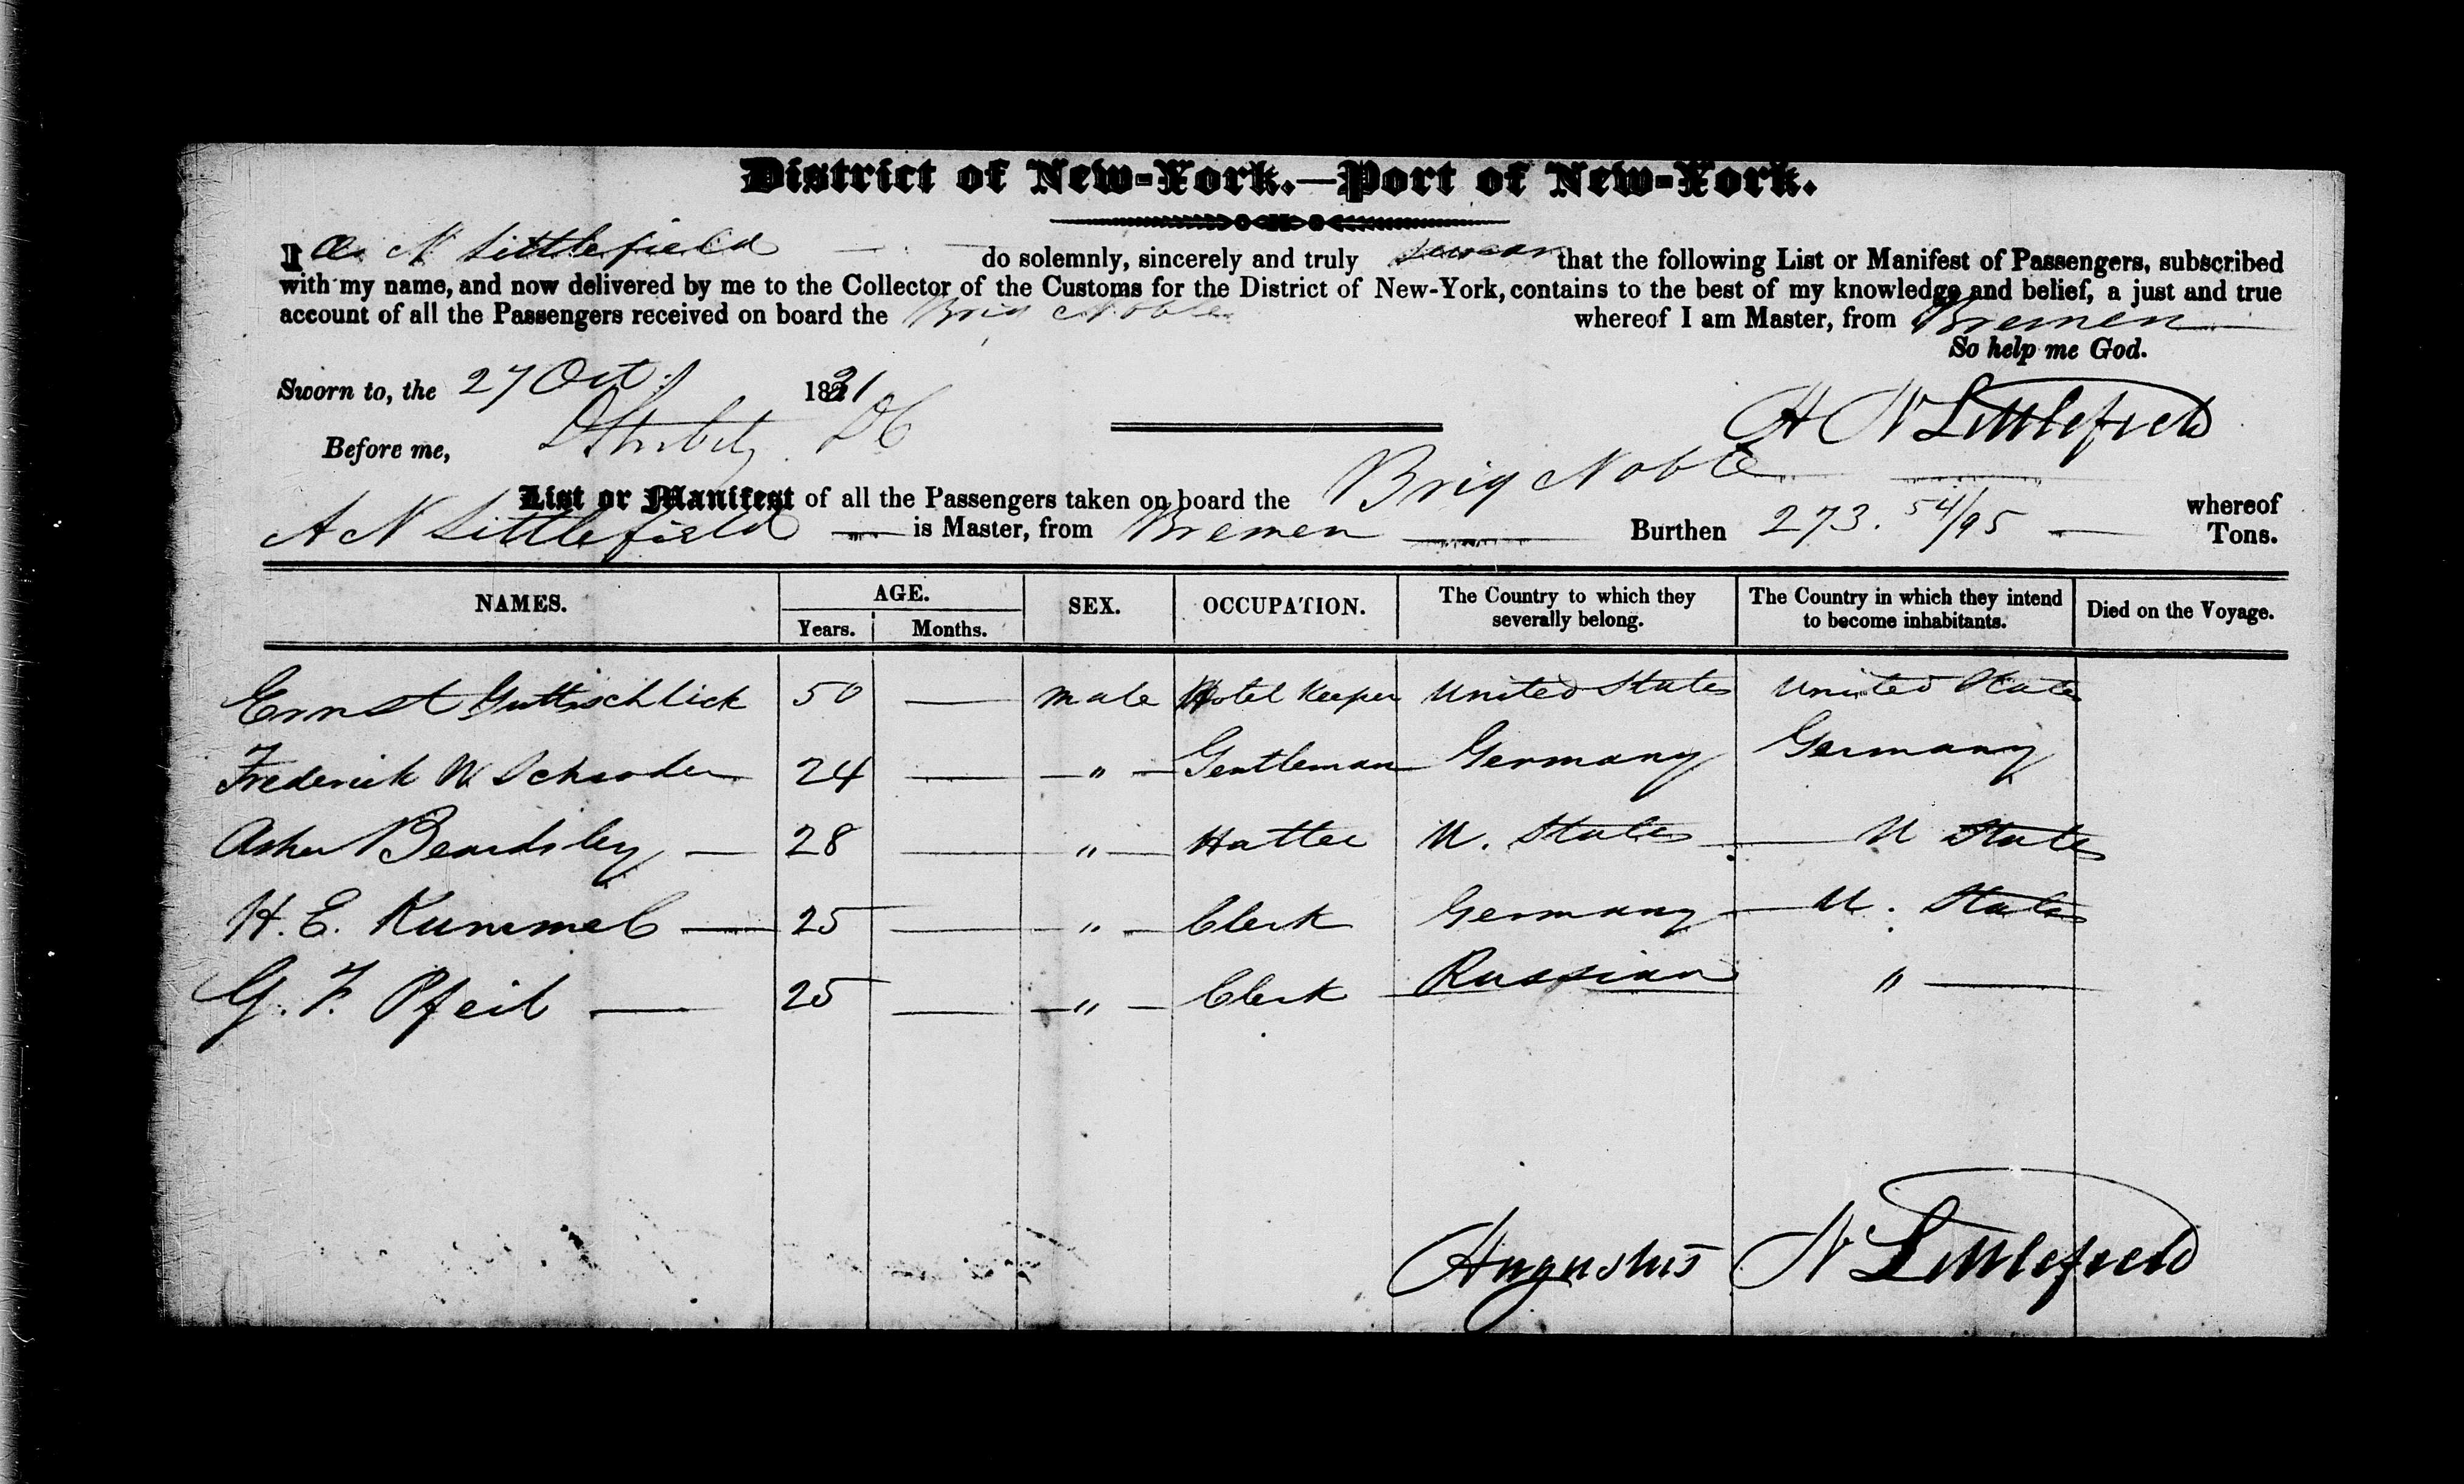 District of New-York.—Port of New-York.
I A. N Littlefield — do solemnly, sincerely and truly swear that the following List or Manifest of Passengers, subscribed
with my name, and now delivered by me to the Collector of the Customs for the District of New-York, contains to the best of my knowledge and belief, a just and true
account of all the Passengers received on board the Brig Noble whereof I am Master, from Bremen
So help me God.
Sworn to, the 27 Oct. 1831
A N Littlefield
Before me, DC
List or Manifest of all the Passengers taken on board the Brig Noble whereof
A N Littlefield — is Master, from Bremen Burthen 273. 54/95 — Tons.
NAMES. AGE. SEX. OCCUPATION. The Country to which they severally belong. The Country in which they intend to become inhabitants. Died on the Voyage.
Years. Months.
Ernst 50 — male Hotel Keeper United States United States
Frederick W Schroder 24 — " Gentleman Germany Germany
Asher Beardsley — 28 — " Hatter U. States — U States
H. E. Kummel — 25 — " Clerk Germany — U. States
G. F. Pfeil — 25 — " Clerk Russian " —
Augustus N Littlefield